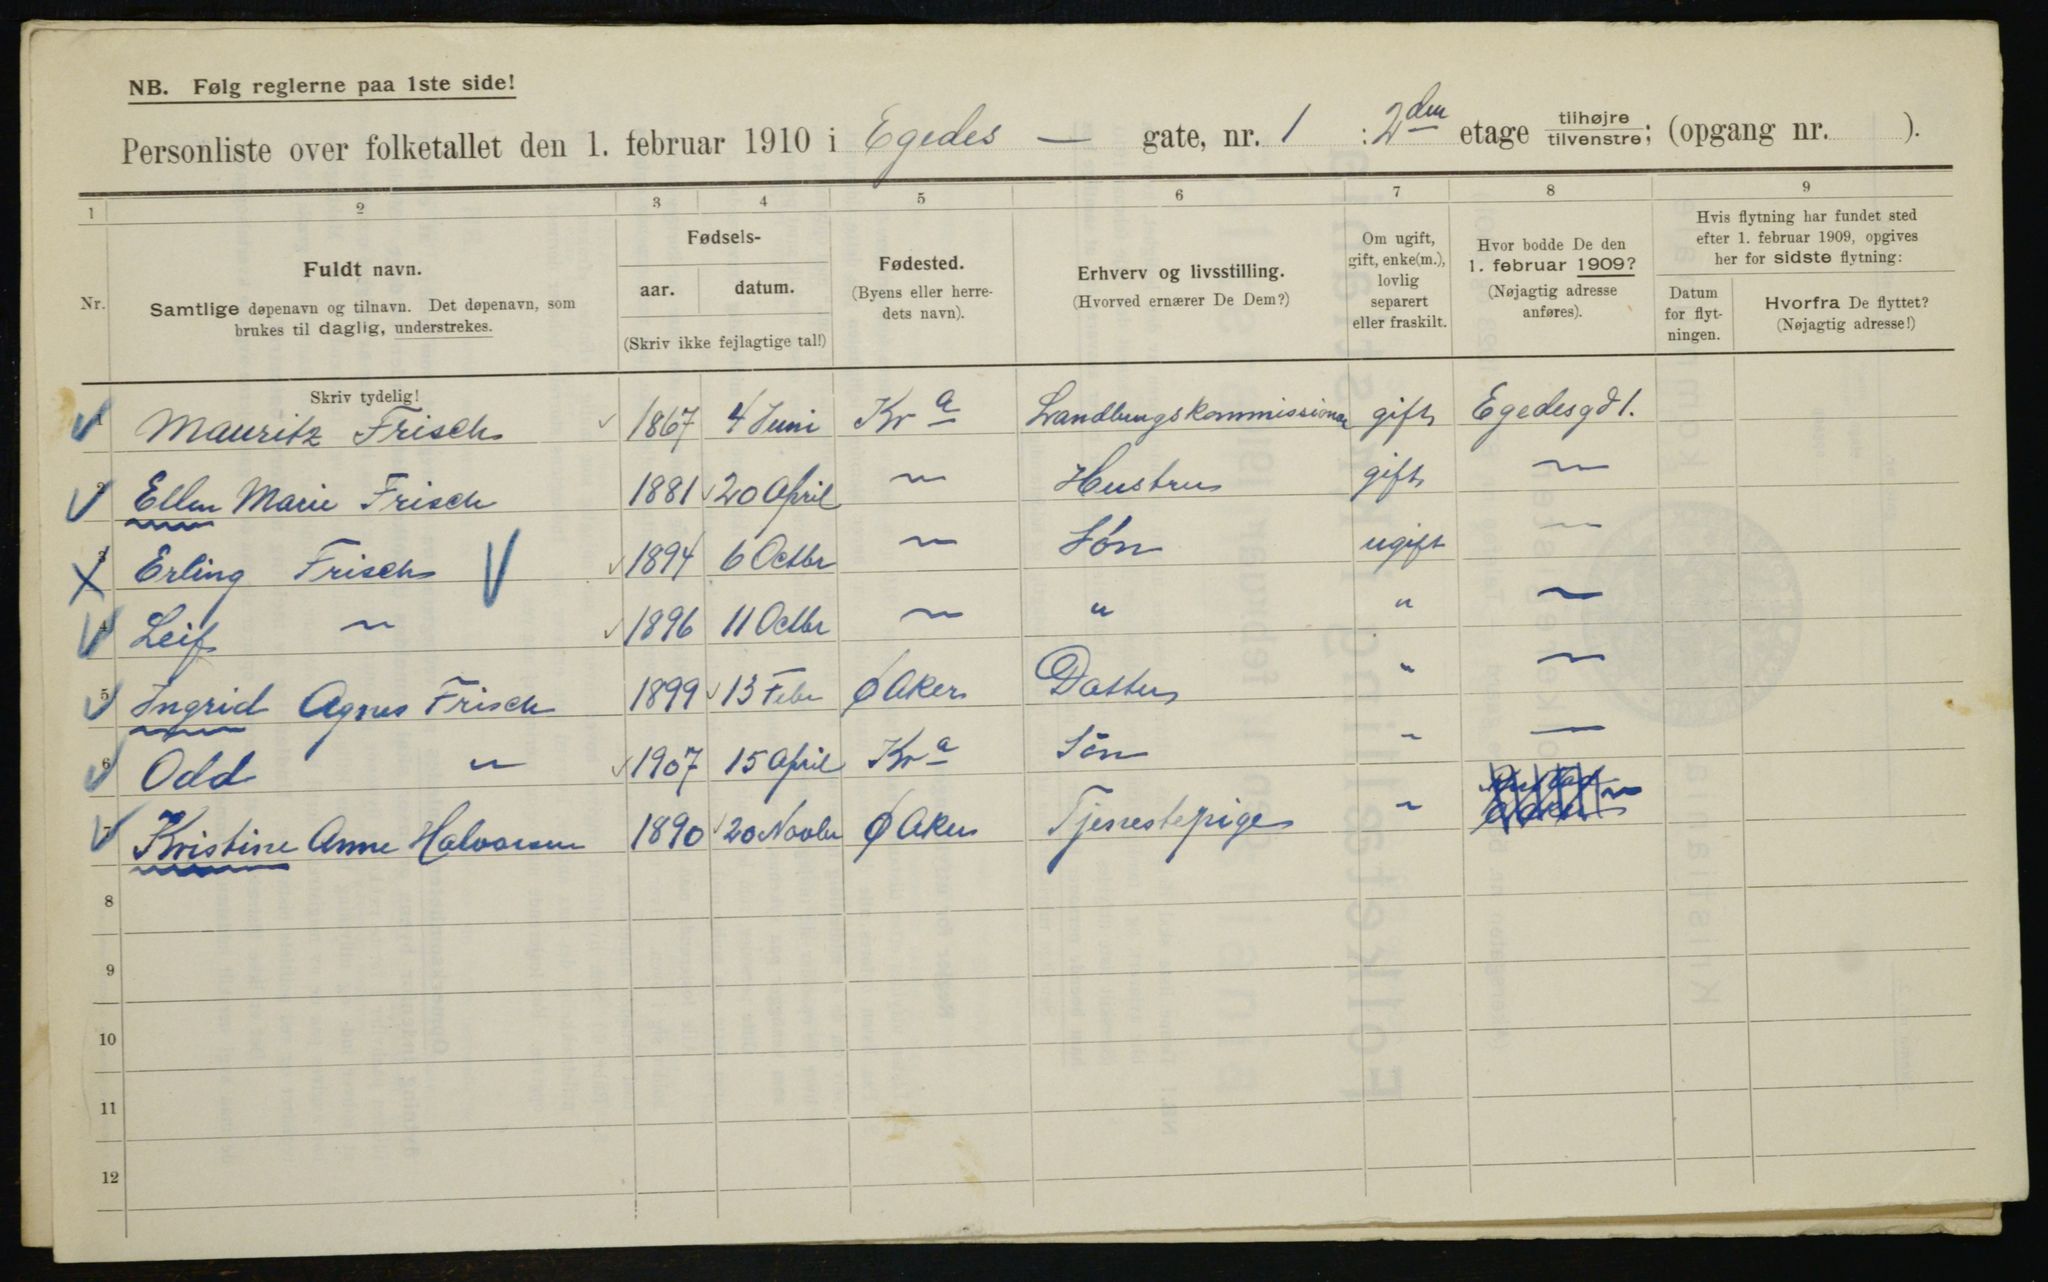 NB. Følg reglerne paa 1ste side!
Personliste over folketallet den 1. februar 1910 i Egedes — gate, nr. 1 : 2den etage tilhøjre tilvenstre; (opgang nr. ).
1 2 3 4 5 6 7 8 9
Nr.
Fuldt navn.
Samtlige døpenavn og tilnavn. Det døpenavn, som
brukes til daglig, understrekes.
Fødsels-
aar. datum.
(Skriv ikke fejlagtige tal!)
Fødested.
(Byens eller herre-
dets navn).
Erhverv og livsstilling.
(Hvorved ernærer De Dem?)
Om ugift,
gift, enke(m.),
lovlig
separert
eller fraskilt.
Hvor bodde De den
1. februar 1909?
(Nøjagtig adresse
anføres).
Hvis flytning har fundet sted
efter 1. februar 1909, opgives
her for sidste flytning:
Datum
for flyt-
ningen.
Hvorfra De flyttet?
(Nøjagtig adresse!)
Skriv tydelig!
1 Mauritz Frisch 1867 4 Juni Kra gift Egedesgd 1.
2 Ellen Marie Frisch 1881 20 April ~ Hustru gift ~
3 Erling Frisch 1894 6 Octbr ~ Søn ugift ~
4 Leif ~ 1896 11 Octbr ~ " " ~
5 Ingrid Agnes Frisch 1899 13 Febr Ø Aker Datter " ~
6 Odd " 1907 15 April Kra Søn " —
7 Kristine Anne Halvorsen 1890 20 Novbr Ø Aker Tjenestepige " ~
8
9
10
11
12